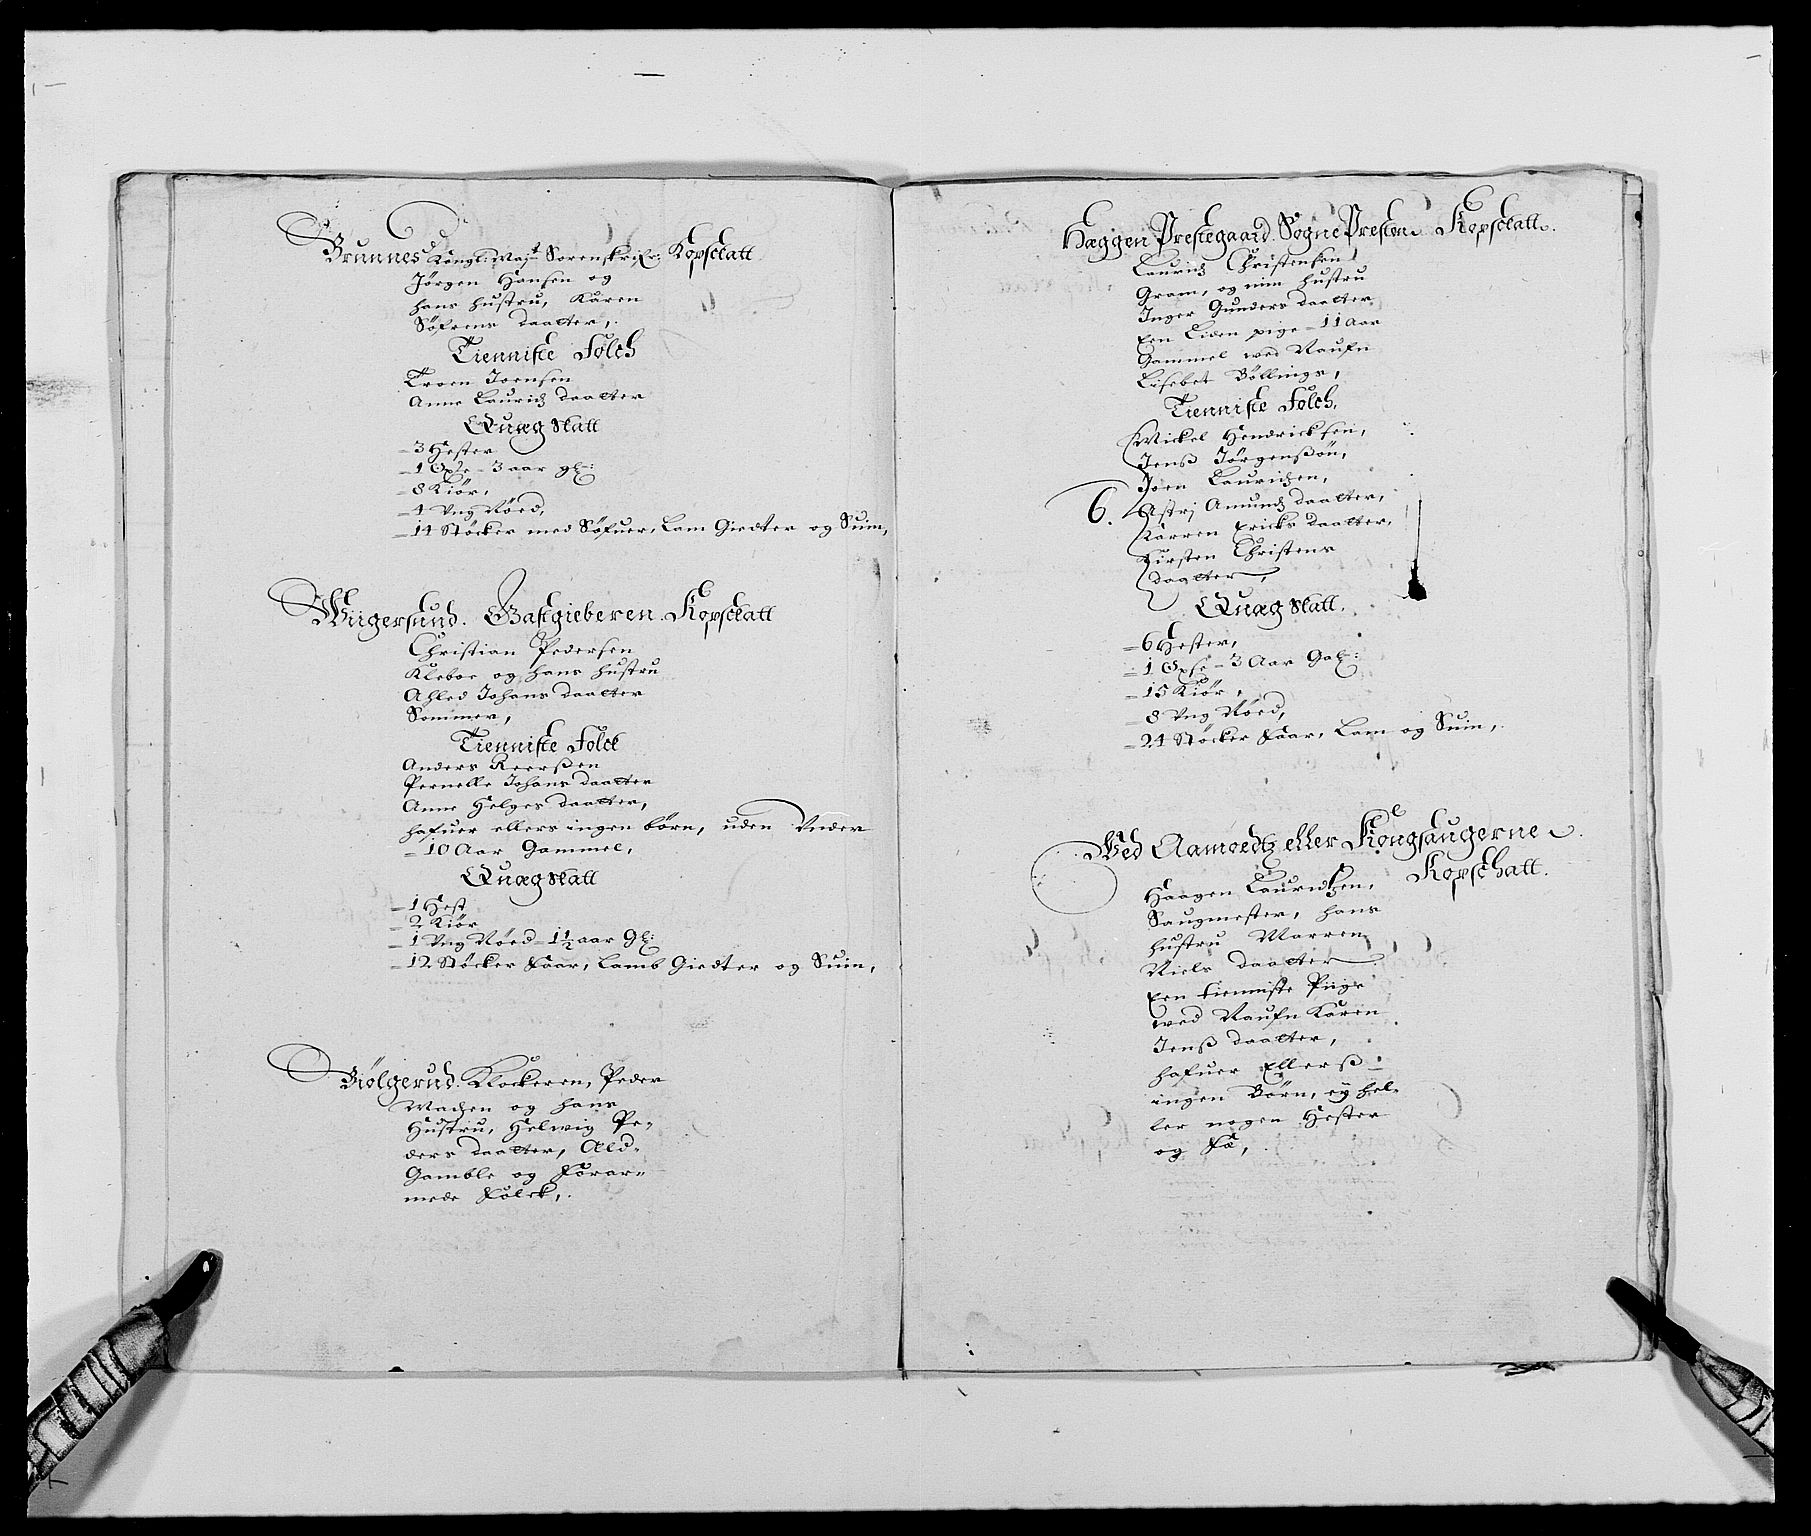 Brunnes Kongl: Mayt Sorenskrifr: Kopschatt
Jørgen Hansen og
hans hustru, Karen
Søfrens daatter,
Tienniste Folch
Troen Joensen
Anne Lauridz daatter
Quæg Skatt
3 Hester
1 Oxe - 3 aar gl:
8 Kiør,
4 Vng Nöed,
14 Støcker med Søfuer, Lam Giedter og Suin,
Wiigersund. Gastgieberen. Kopschatt
Christian Pedersen
Kleboe og hans hustru
Ahled Johans daatter
Sommer,
Tienniste Folck
Anders Reerßen
Pernelle Johans daatter
Anne Helges daatter,
hafuer ellers ingen børn, uden Vnder
10 Aar Gammel,
Quæg Skatt
1 Hest
2 Kiør
1 Vng Nöed - 1½ aar Gl:
12 Støcker Faar, Lamb Giedter og Suin,
Biølgerud. Klockeren, Peder
Madzen og hans
Hustru, Helwig Pe-
ders daatter, Ald-
Gamble og Forar-
mede Folck,
Hæggen Prestegaard. Sogne Presten Kopschatt.
Lauridz Christensen
Gram, og min hustru
Inger Gunders daatter
Een Liden pige - 11 Aar
Gammel wed Naufn
Lisebet Böllings,
Tienniste Folch,
Mickel Hendricksen,
Jenß Jörgenßön,
Joen Lauridzen,
6. Astrj Amundz daatter,
Karren Ericks daatter,
Kirsten Christens
daatter,
Quæg Skatt.
6 Hester,
1 Oxe - 3 Aar Gal:
15 Kiør,
8 Vng Nöed,
24 Støcker Faar, Lam og Suin,
Wed Aamoedtz eller Kongsaugerne
Kopschatt.
Haagen Lauridtzen,
Saugmester, hans
hustru Marren
Niels daatter
Een tienniste Piige
wed Naufn Karen
Jenß daatter,
hafuer Ellerß
ingen Börn, ey hel-
ler nogen Hester
og Fæ,